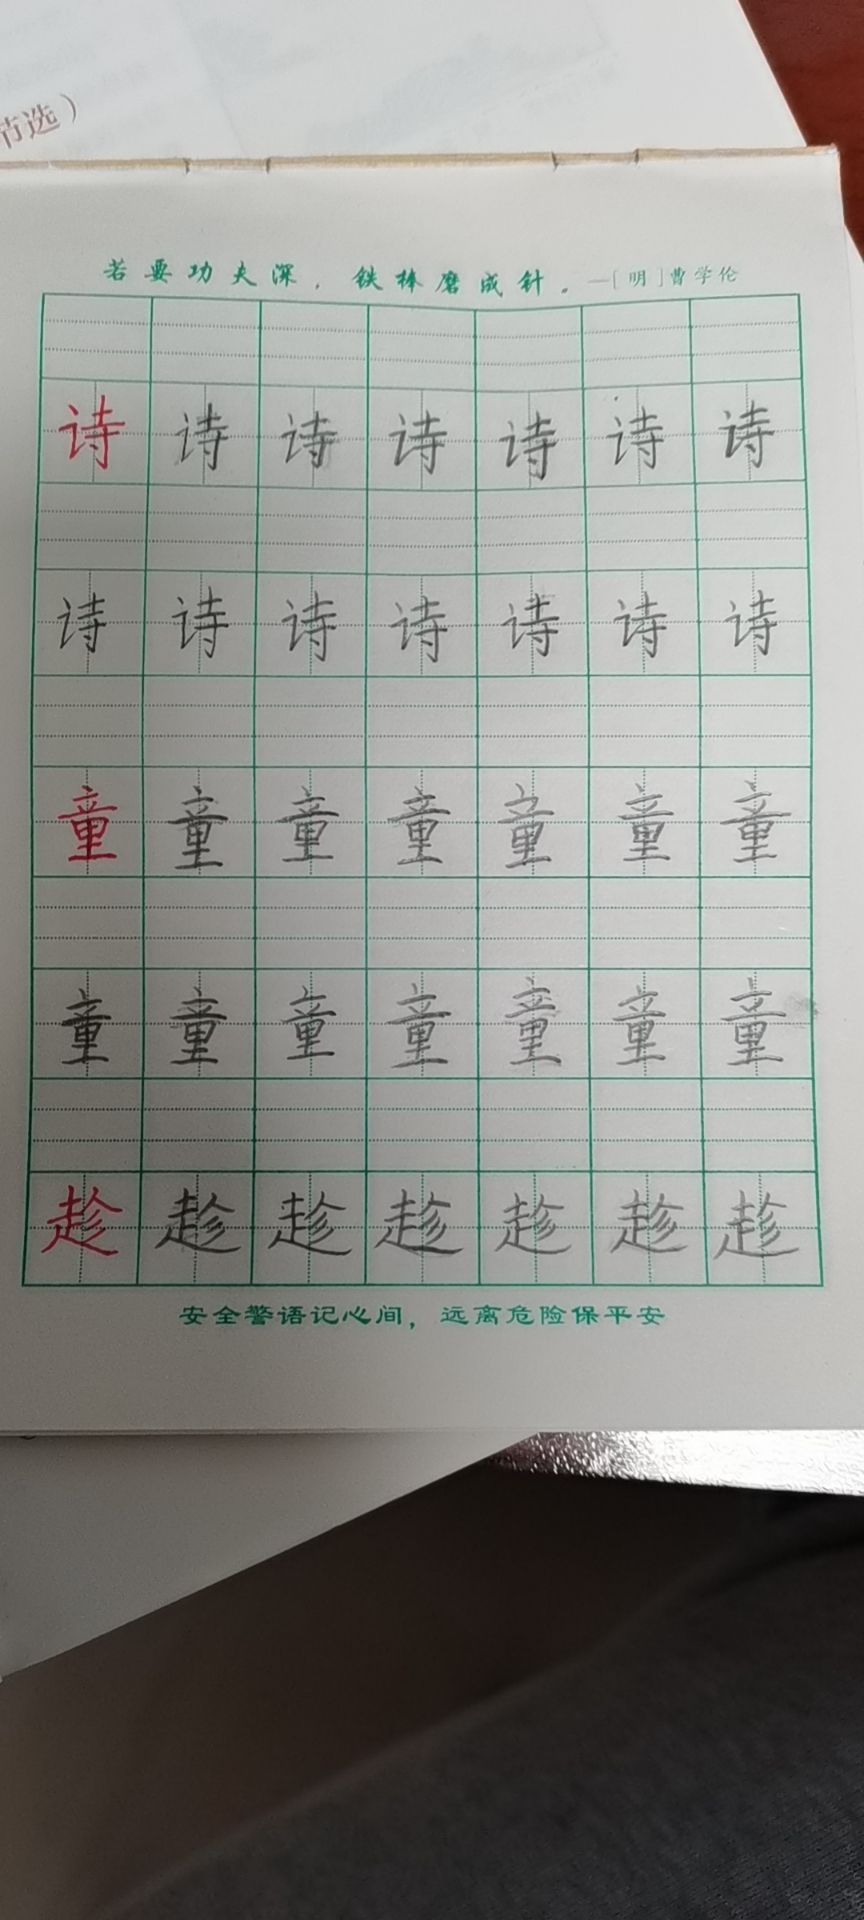 节选）
若要功夫深，铁棒磨成针。—［明］曹学伦
诗 诗 诗 诗 诗 诗 诗
诗 诗 诗 诗 诗 诗 诗
童 童 童 童 童 童 童
童 童 童 童 童 童 童
趁 趁 趁 趁 趁 趁 趁
安全警语记心间，远离危险保平安